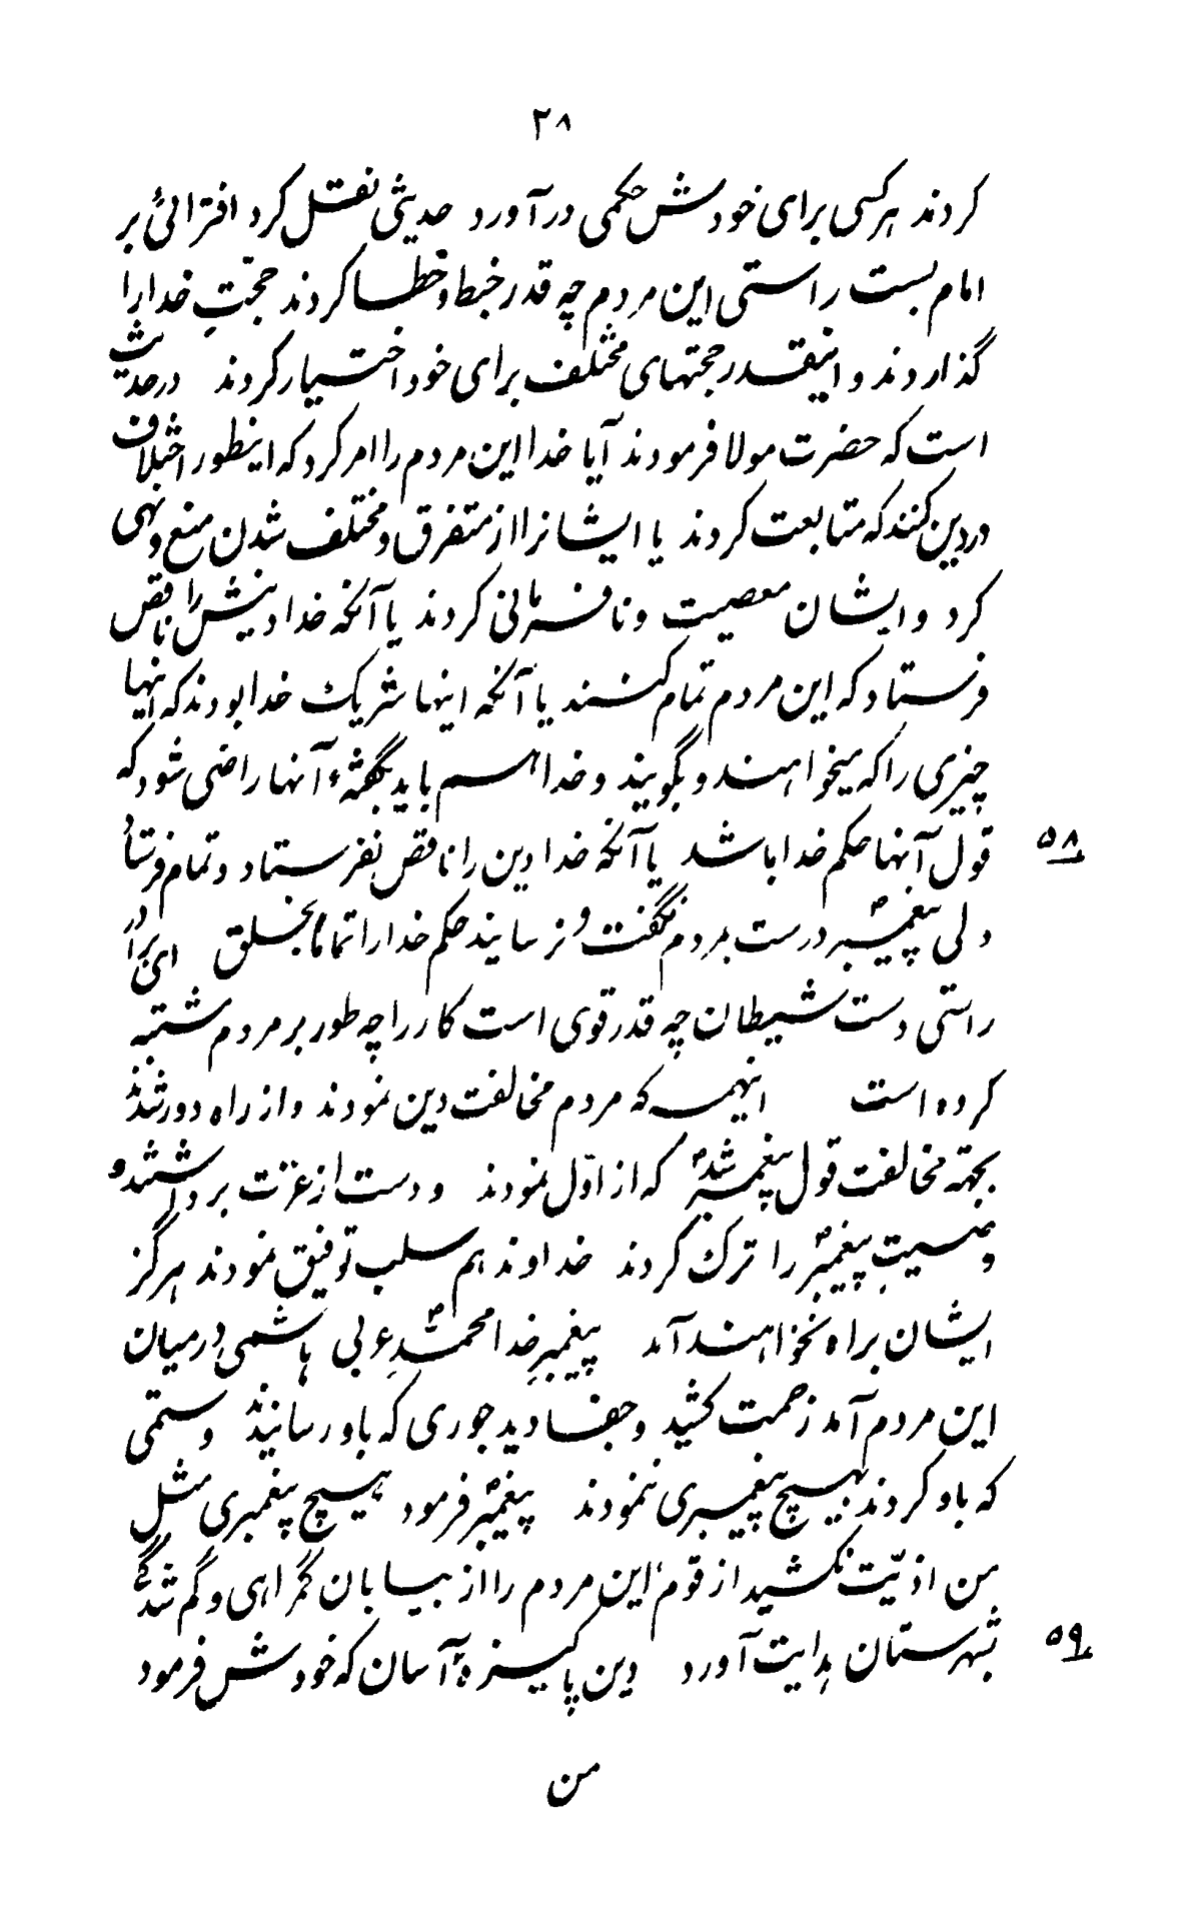 ۲۸
کردند هر کسی برای خودش حکمی درآورد حدیثی نقل کرد افترائی بر
امام بست راستی این مردم چه قدر خبط و خطا کردند حجّتِ خدا را
گذاردند و اینقدر حجتهای مختلف برای خود اختیار کردند در حدیث
است که حضرت مولا فرمودند آیا خدا این مردم را امر کرد که اینطور اختلاف
در دین کنند که متابعت کردند یا ایشانرا از متفرق و مختلف شدن منع و نهی
کرد و ایشان معصیت و نافرمانی کردند یا آنکه خدا دینش را ناقص
فرستاد که این مردم تمام کنند یا آنکه اینها شریک خدا بودند که اینها
چیزی را که میخواهند و بگویند و خدا هم باید بگفتهٔ آنها راضی شود که
۵۸
قول آنها حکم خدا باشد یا آنکه خدا دین را ناقص نفرستاد و تمام فرستاد
ولی پیغمبر ص درست بمردم نگفت و نرسانید حکم خدا را تماما بخلق ای برادر
راستی دست شیطان چه قدر قوی است کار را چه طور بر مردم مشتبه
کرده است اینهمه که مردم مخالفت دین نمودند و از راه دور شدند
بجهة مخالفت قول پیغمبر ص شد که از اوّل نمودند و دست از عترت برداشتند و
وصیت پیغمبر ص را ترک کردند خداوند هم سلب توفیق نمودند هرگز
ایشان براه نخواهند آمد پیغمبرِ خدا محمّد ص عربی هاشمی در میان
این مردم آمد زحمت کشید و جفا دید جوری که باو رسانیدند و ستمی
که باو کردند بهیچ پیغمبری ننمودند پیغمبر ص فرمود هیچ پیغمبری مثل
من اذیّت نکشید از قوم این مردم را از بیابان گمراهی و گم شدگی
۵۹
بشهرستان هدایت آورد دین پاکیزهٔ آسان که خودش فرمود
من